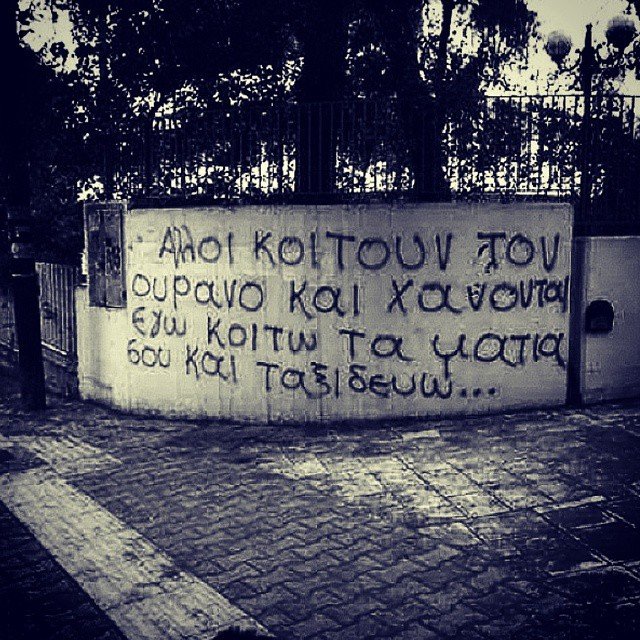 Αλλοι κοιτουν τον
ουρανο και χανονται
Εγω κοιτω τα ματια
σου και ταξιδευω...